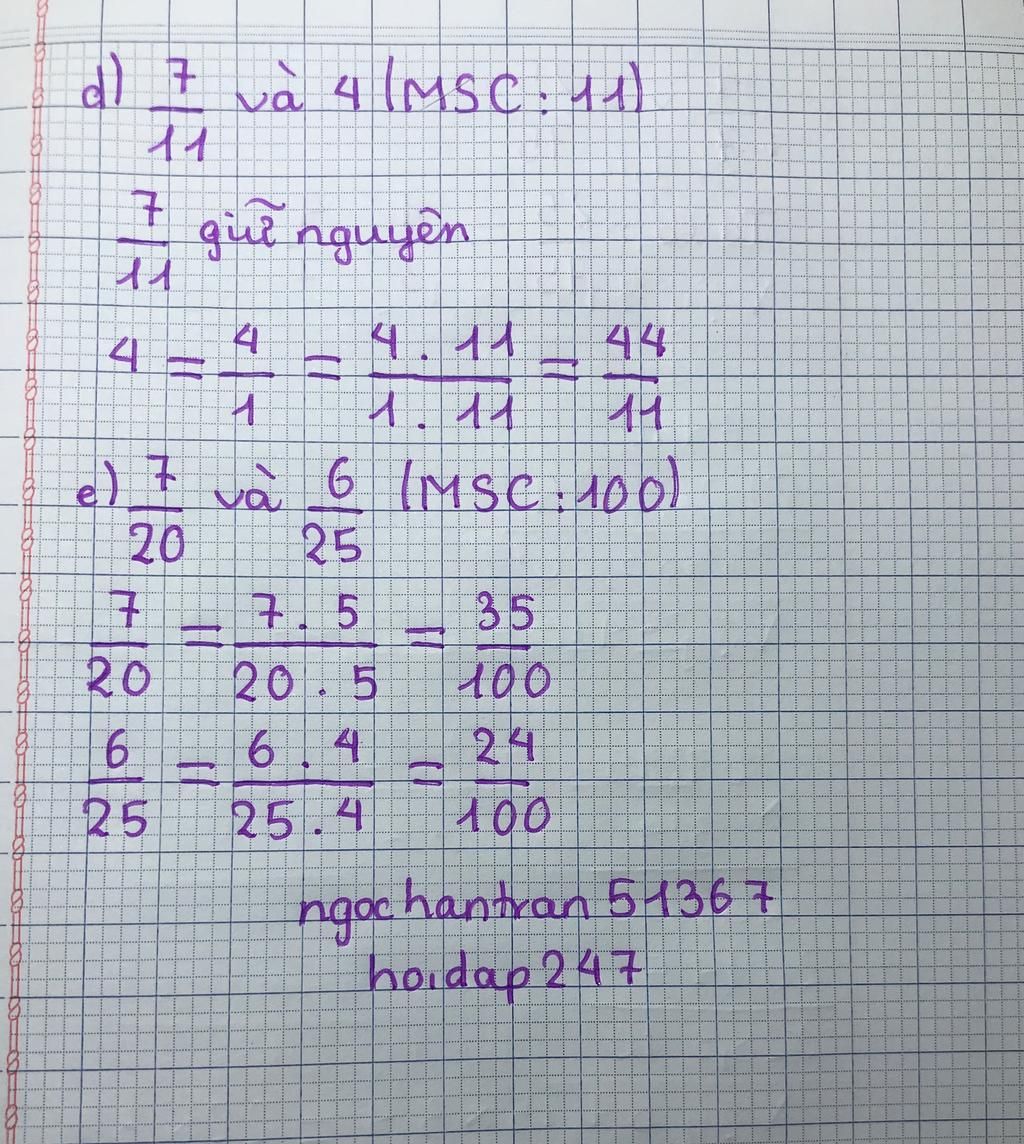 d) 7/11 và 4 (MSC: 11)
7/11 giữ nguyên
4 = 4/1 = 4 . 11/1 . 11 = 44/11
e) 7/20 và 6/25 (MSC: 100)
7/20 = 7 . 5/20 . 5 = 35/100
6/25 = 6 . 4/25 . 4 = 24/100
ngochantran51367
hoidap247